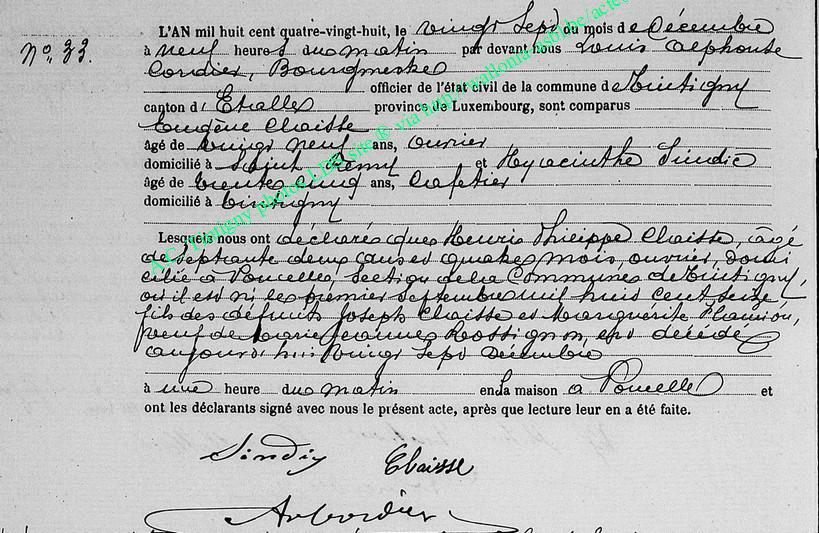 L'AN mil huit cent quatre-vingt-huit, le vingt sept du mois de Décembre
N° 33. à neuf heures du matin par devant nous Louis Alphonse
Cordier, Bourgmestre
officier de l'état civil de la commune de Tintigny
canton d'Etalle province de Luxembourg, sont comparus
Eugène Claisse
âgé de vingt neuf ans, ouvrier
domicilié à Saint Remy et Hyacinthe Sindic
âgé de trente cinq ans, Cafetier
domicilié à Tintigny
Lesquels nous ont déclaré que Henri Philippe Claisse, âgé
de septante deux ans et quatre mois, ouvrier, domi
cilié à Poncelle, Section de la Commune de Tintigny,
où il est né le premier septembre mil huit cent seize,
fils des défunts Joseph Claisse et Marguerite
veuf de Marie Jeanne Rossignon, est décédé
aujourd'hui vingt sept Décembre
à une heure du matin en sa maison à Poncelle et
ont les déclarants signé avec nous le présent acte, après que lecture leur en a été faite.
Claisse
ALCordier